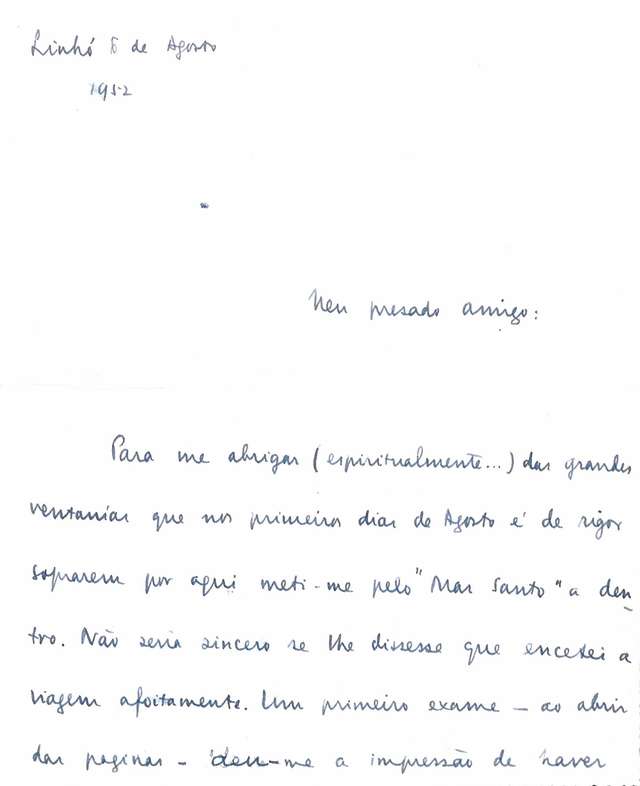 Linhó 8 de Agosto
1952
Meu presado amigo:
Para me abrigar (espiritualmente...) das grandes
ventanias que nos primeiros dias de Agosto é de rigor
soprarem por aqui meti-me pelo "Mar Santo" a den-
tro. Não seria sincero se lhe dissesse que encetei a
viagem afoitamente. Um primeiro exame — ao abrir
das paginas — deu-me a impressão de haver